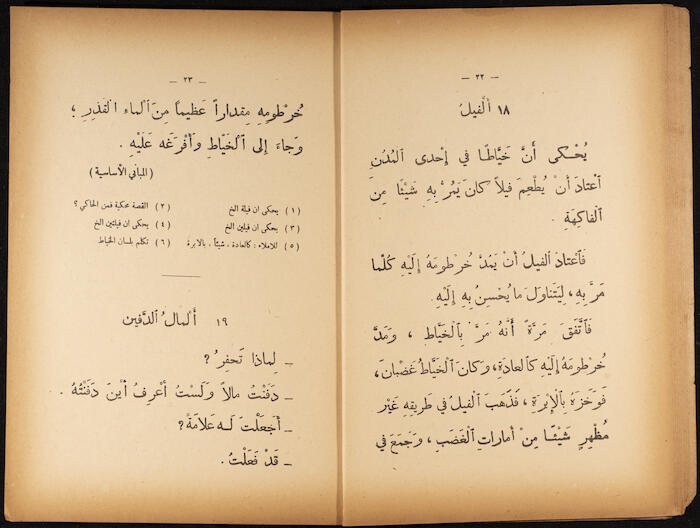 — ٢٢ —
١٨ اَلْفيلُ
يُحْـكى أَنَّ خَيَّاطًا في إِحْدى اَلمُدُنِ
اَعْتادَ أَنْ يُطْعِمَ فيلاً كانَ يَمُرُّ بِهِ شَيْئًا مِنَ
اَلفاكِهَةِ.
فَاَعْتادَ اَلفيلُ أَنْ يَمُدَّ خُرْطومَهُ إِلَيْهِ كُلَّما
مَرَّ بِهِ، لِيَتَناوَلَ ما يُحْسِنُ بِهِ إِلَيْهِ.
فَاَتَّفَقَ مَرَّةً أَنَّهُ مَرَّ بِاَلْخَيَّاطِ، وَمَدَّ
خُرْطومَهُ إِلَيْهِ كَاَلعادَةِ، وَكانَ اَلْخَيَّاطُ غَضْبانَ،
فَوَخَزَهُ بِاَلْإِبْرَةِ، فَذَهَبَ اَلفيلُ في طَريقِهِ غَيْرَ
مُظْهِرٍ شَيْئًا مِنْ أَماراتِ اَلْغَضَبِ، وَجَمَعَ في
— ٢٣ —
خُرْطومِهِ مِقْداراً عَظيماً مِنَ اَلماءِ اَلْقَذِرِ؛
وَجاءَ إِلى اَلْخَيَّاطِ وَأَفْرَغَه عَلَيْهِ.
(المباني الأساسية)
(١) يحكى ان فيلة الخ (٢) القصة محكية فمن الحاكي؟
(٣) يحكى ان فيلين الخ (٤) يحكى ان فيلتين الخ
(٥) للاملاء: كالعادة، شيئاً، بالابرة (٦) تكلم بلسان الخياط
١٩ أَلمالُ الدَّفين
_ لِماذا تَحْفِرُ؟
_ دَفَنْتُ مالاً وَلَسْتُ أَعْرِفُ أَيْنَ دَفَنْتُهُ.
_ أَجَعَلْتَ لَـهُ عَلامَةً؟
_ قَدْ فَعَلْتُ.